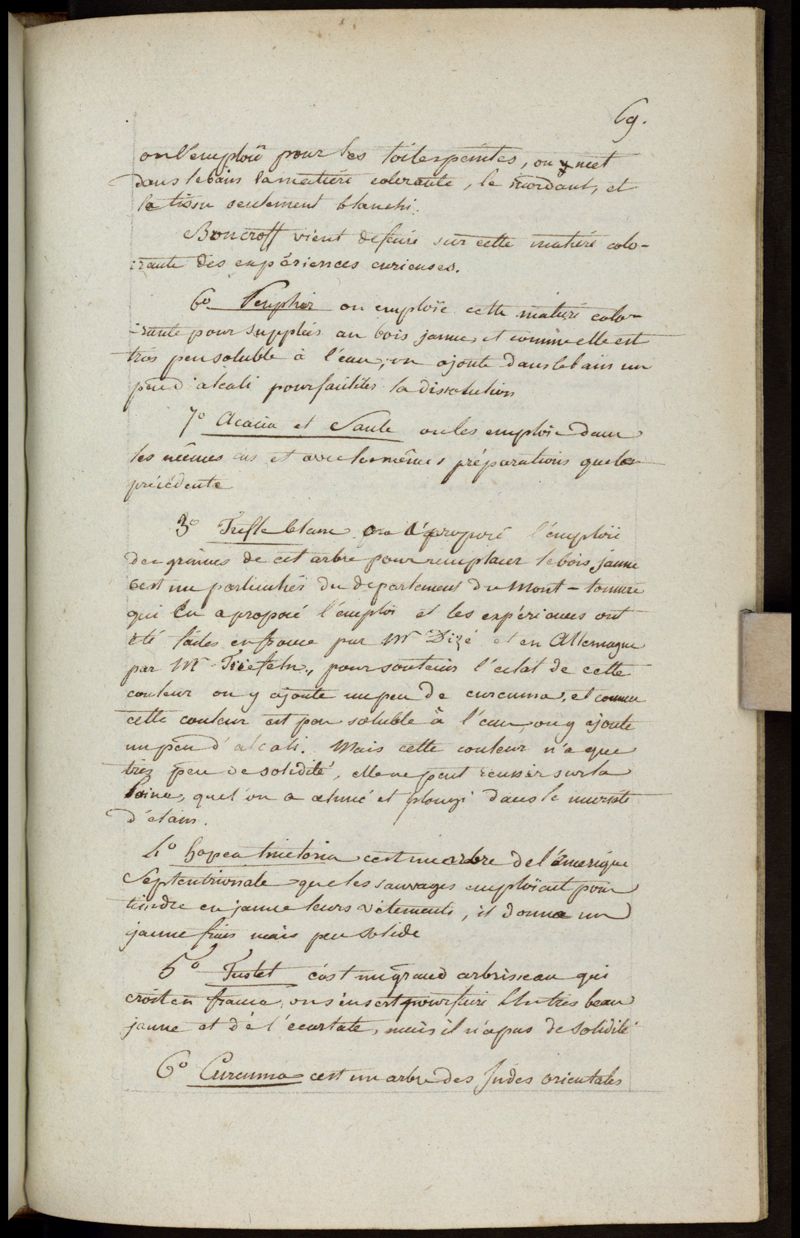 69.
on l'emploïe pour les toiles peintes, on y met
dans le bain la matière colorante, le mordant, et
le tissu seulement blanchi.
Boncroff vient defaire sur cette matière colo-
:rante des expériences curieuses.
6.º Peuplier on emploïe cette matière colo-
-rante pour suppléer au bois jaune, et comme elle est
très peu soluble à l'eau, on ajoute dans le bain un
peu d'alcali pour faciliter la dissolution
7º Acacia et Saule on les emploïe dans
les mêmes cas et avec les mêmes préparations que la
précédente
3º Trefle blanc on a proposé l'emploïe
des graines de cet arbre pour remplacer le bois jaune
c'est un particulier du departement du Mont-tonnere
qui en a proposé l'emploi et les expériences ont
été faites en france par Mr Dizé et en Allemagne
par Mr , pour soutenir l'eclat de cette
couleur on y ajoute un peu de curcuma, et comme
cette couleur est peu soluble à l'eau, on y ajoute
un peu d'alcali. Mais cette couleur n'a que
trez peu de solidité, elle ne peut reussir sur la
laine, que l'on a aluné et plongé dans le muriate
d'etain.
4º hopea tinctoria c'est un arbre de l'amerique
Septentrionale que les sauvages emploïent pour
teindre en jaune leurs vêtements, il donne un
jaune fin mais peu solide
5º Fustet c'est un grand arbrisseau qui
croit en france, on s'en sert pour faire Un très beau
jaune et de l'ecarlate, mais il n'a pas de solidité
6º Curcuma c'est un arbre des Indes orientales